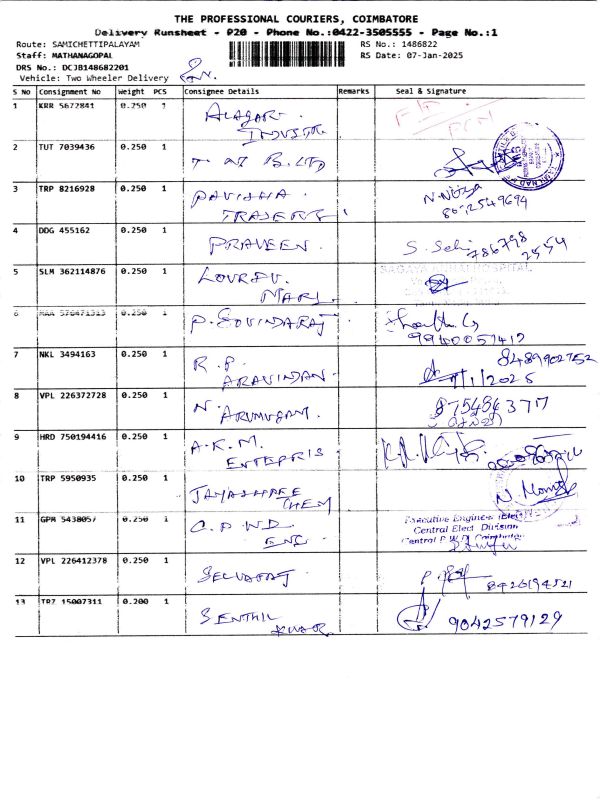 THE PROFESSIONAL COURIERS, COIMBATORE
Delivery Runsheet - P20 - Phone No.:0422-3505555 - Page No.:1
Route: SAMICHETTIPALAYAM
RS No.: 1486822
Staff: MATHANAGOPAL
RS Date: 07-Jan-2025
DRS No.: DCJB148682201
Vehicle: Two Wheeler Delivery
S No Consignment No Weight PCS Consignee Details Remarks Seal & Signature
1 KRR 5672841 0.250 1 ALAGAR
2 TUT 7039436 0.250 1 T N E B. LTD
3 TRP 8216928 0.250 1 PAVISHA
N. Nithya
4 DDG 455162 0.250 1 PRAVEEN .
786798
2554
5 SLM 362114876 0.250 1 LOURDU.
MARI
6 MAA 576471313 0.250 1 P. GOVINDARAJ
9940057417
7 NKL 3494163 0.250 1 R. P.
ARAVINDAN.
8489902752
7/1/2025
8 VPL 226372728 0.250 1 N. ARUMUGAM.
8754843717
9 HRD 750194416 0.250 1 A. R. M.
ENTEPRIS
10 TRP 5950935 0.250 1 JAYASHREE
CHEM
11 GPM 5438057 0.250 1 C. P W D
ENG
Executive Engineer (Elec)
Central Elect Division
Central P W D Coimbatore
12 VPL 226412378 0.250 1 SELVARAJ
8426194521
13 TPZ 15007311 0.200 1 SENTHIL
KUMAR
9042579129